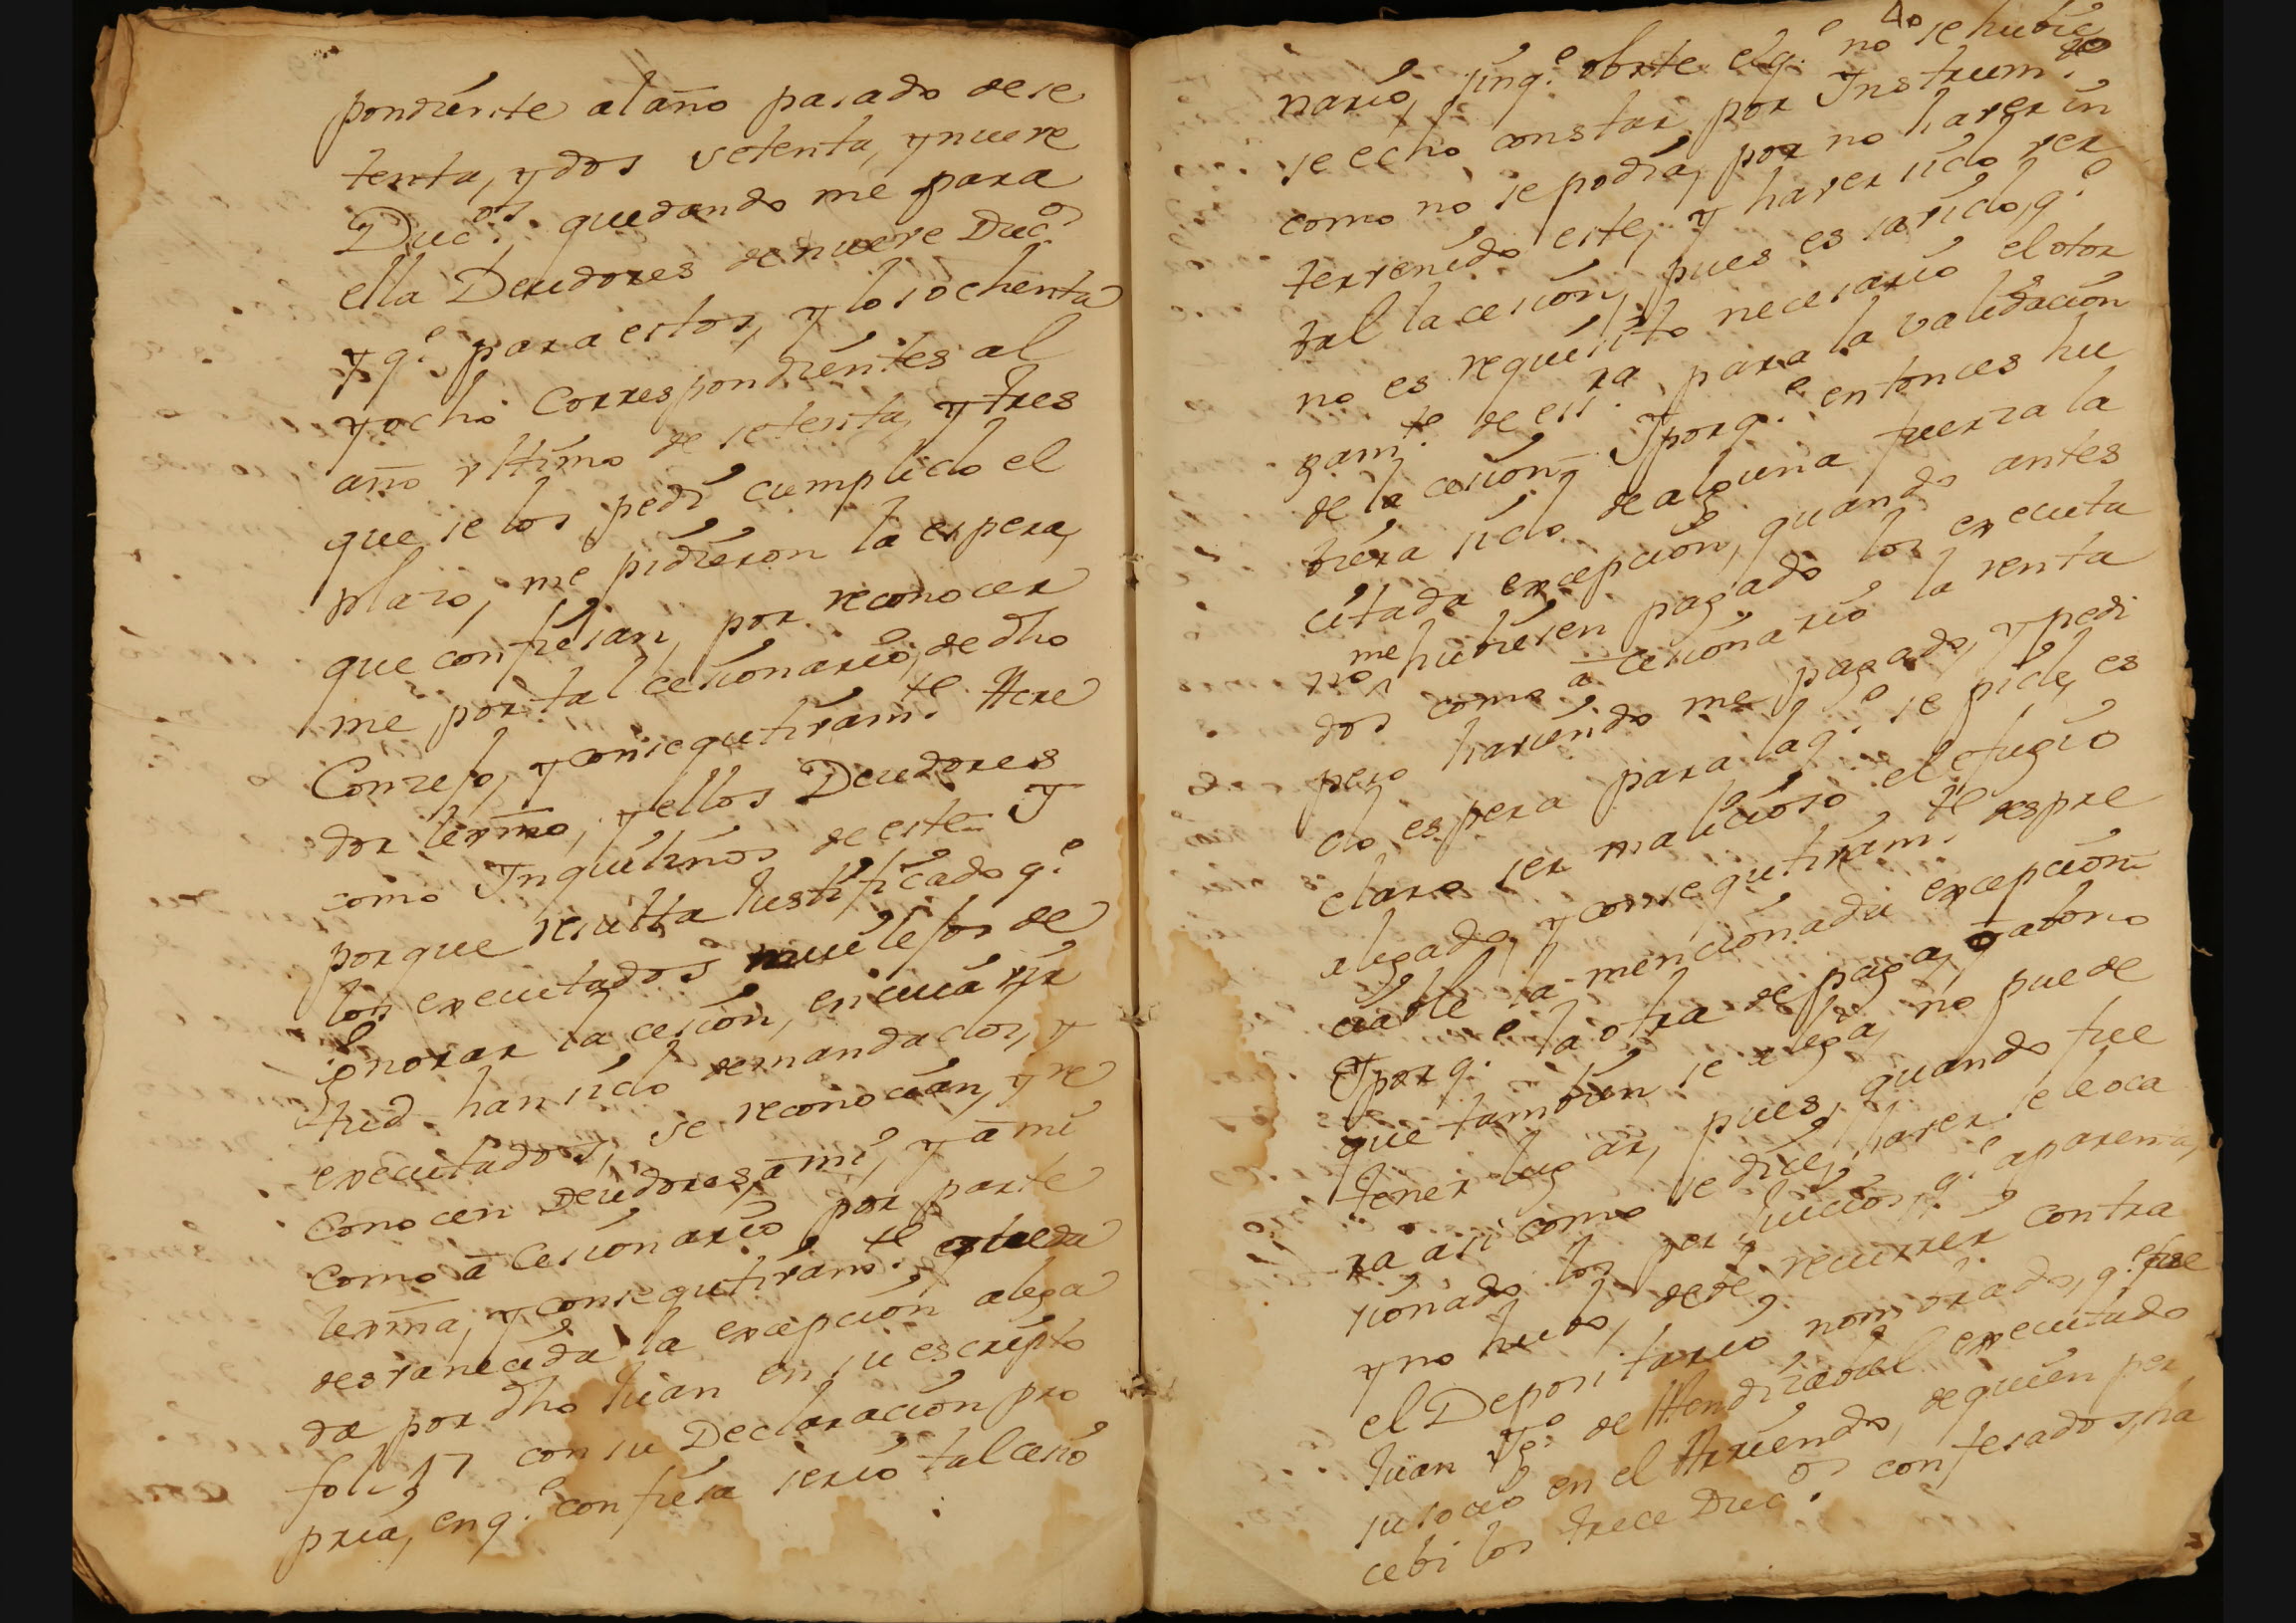 pondiente al año pasado de se
tenta, y dos setenta, y nueve
Duc.os, quedando me para
ella Deudores de nueve Duc.os
y q.e para estos, y los ochenta
y ocho Correspondientes al
año vltimo de setenta, y tres
que se los pedi cumplido el
plazo, me pidieron la espera,
que confiesan, por reconocer
me por tal cesionario, de dho
Conzejo, y consequtivam.te Acre
dor lexmo, y ellos Deudores
como Inquilinos de este = Y
porque resulta Justificado q.e
los executados mui lejos de
ignorar la cesion, en cuia vir
tud han sido demandados, y
executados, se reconocian, y re
conocen Deudores, à mi, y à mi
como à Cesionario por parte
lexma, y consequtivam.te queda
desvanecida la excepcion alega
da por dho Juan en su escripto
fol. 17 con su Declaracion pro
pria, en q.e confiesa serio tal cesio
40
nario, sin q.e obste el q.e no se hubie
se echo constar por Instrum.to
como no se podia, por no haver in
tervenido este, y haver sido ver
bal la cesion, pues es savido, q.e
no es requisito necesario el otor
gam.to de ess.ra para la validacion
de la cesion = Y porq.e entonces hu
biera sido de alguna fuerza la
citada excepcion, quando antes
no me hubiesen pagado los executa
dos como à cesionario la renta
pero haviendo me pagado, y pedi
do espera para la q.e se pide, es
claro ser malicioso el efugio
alegado, y consequtivam.te despre
ciable la mencionada excepcion =
Y porq.e la otra de paga, ò abono
que tambien se alega, no puede
tener lugar, pues, quando fue
ra asi como se dice, haver se le oca
sionado los perjuicios, q.e aparenta,
y no hubo, debe recurrir contra
el Depositario nombrado, q.e fue
Juan Ig.o de Mendizabal executado
su socio en el Arriendo, de quien per
cebi los trece Duc.os confesados, ha